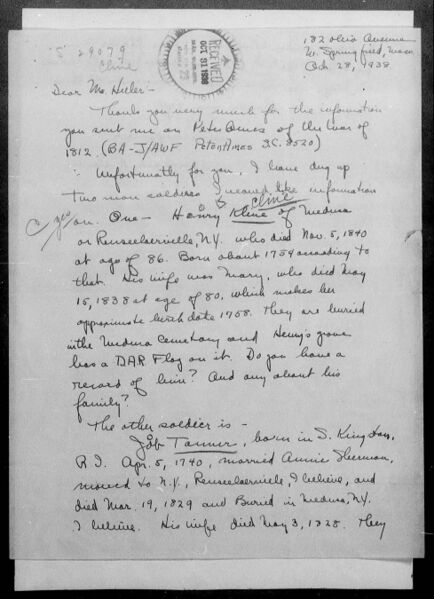 S 29079
Cline
RECEIVED
OCT 31 1938
182 Ohio Avenue
W. Springfield, Mass
Oct. 28, 1938
Dear Mr. Hiller-
Thank you very much for the information
you sent me on Peter Ames of the War of
1812. (BA-J/AWF Peter Ames S.C. 8520)
Unfortunatly for you, I have dug up
two more soldiers I would like information
yes
on. One- Henry Kline of Medusa
Cline
or Rensselaerville, N.Y. who died Nov. 5, 1840
at age of 86. Born about 1754 according to
that. His wife was Mary, who died May
15, 1838 at age of 80, which makes her
approximate birth date 1758. They are buried
in the Medusa Cemetary and Henry's grave
has a DAR Flag on it. Do you have a
record of him? And any about his
family?
The other soldier is -
Job Tanner, born in S. Kingston,
R.I. Apr. 5, 1740, married Annie Sherman,
moved to N.Y., Rensselaerville, I believe, and
died Mar. 19, 1829 and Buried in Medusa, N.Y.
I believe. His wife died May 3, 1828. They